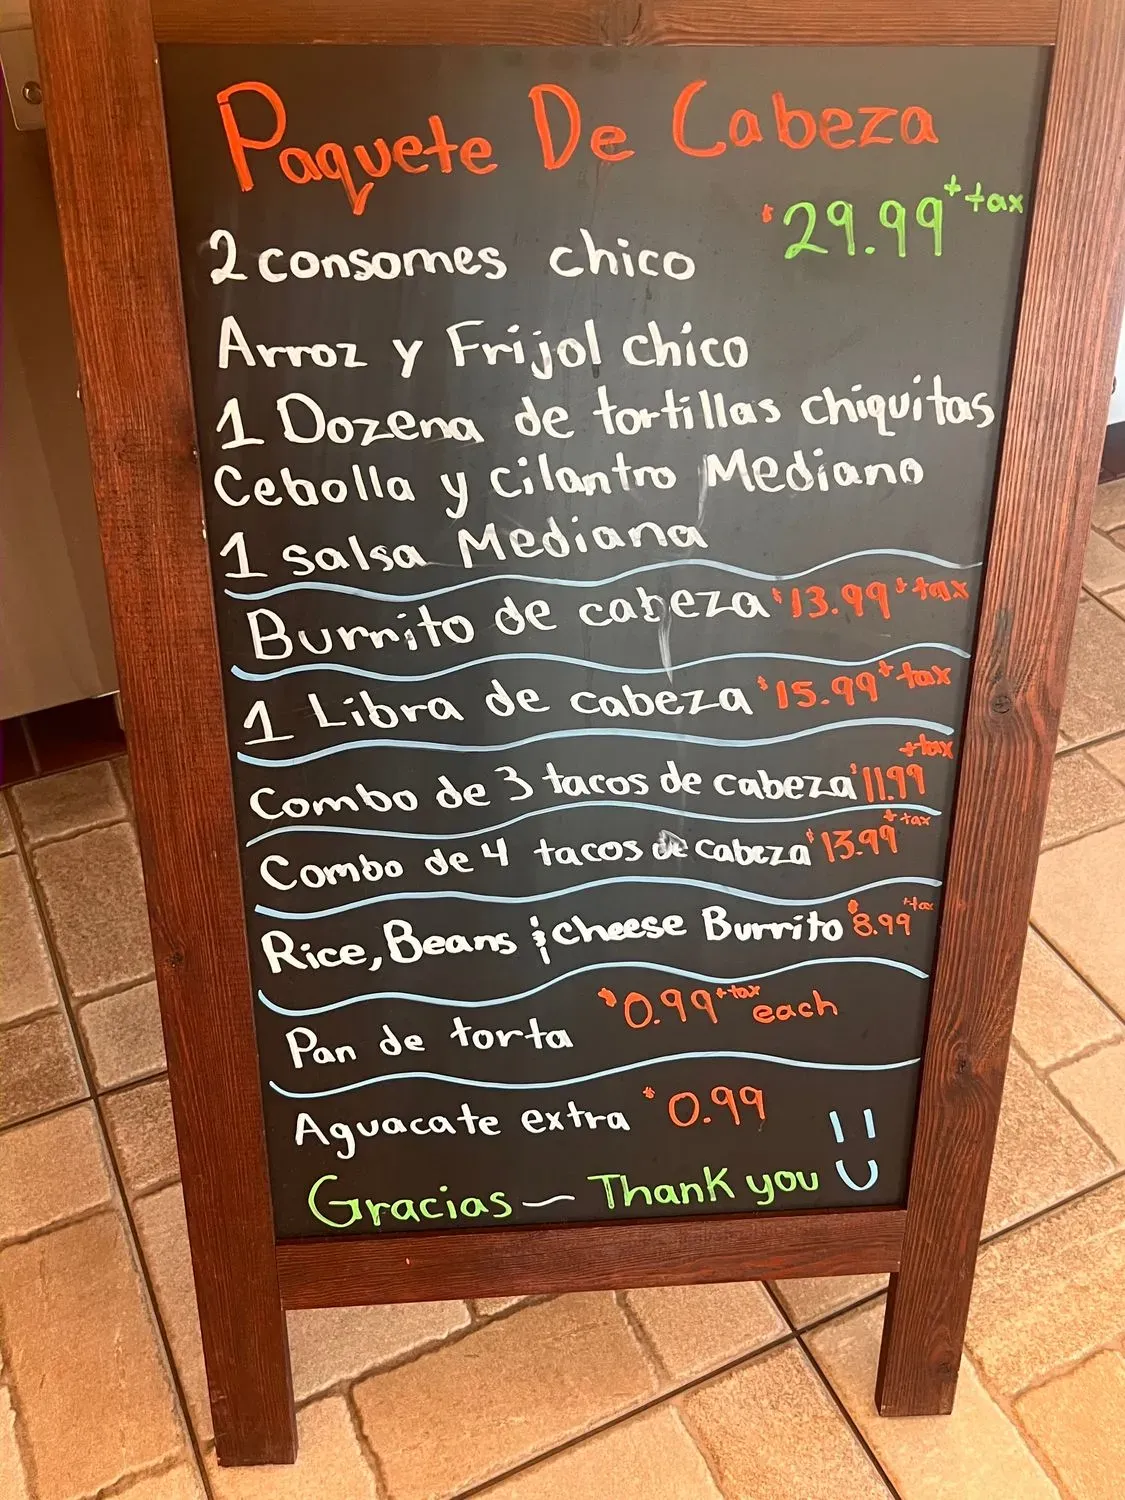 Paquete De Cabeza
$29.99 + tax
2 consomes chico
Arroz y Frijol chico
1 Dozena de tortillas chiquitas
Cebolla y Cilantro Mediano
1 salsa Mediana
Burrito de cabeza $13.99 + tax
1 Libra de cabeza $15.99 + tax
Combo de 3 tacos de cabeza $11.99 + tax
Combo de 4 tacos de cabeza $13.99 + tax
Rice, Beans & cheese Burrito $8.99 + tax
Pan de torta $0.99 + tax each
Aguacate extra $0.99
Gracias — Thank you